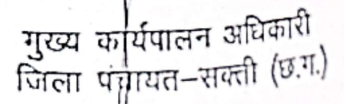 मुख्य कार्यपालन अधिकारी
जिला पंचायत-सक्ती (छ.ग.)